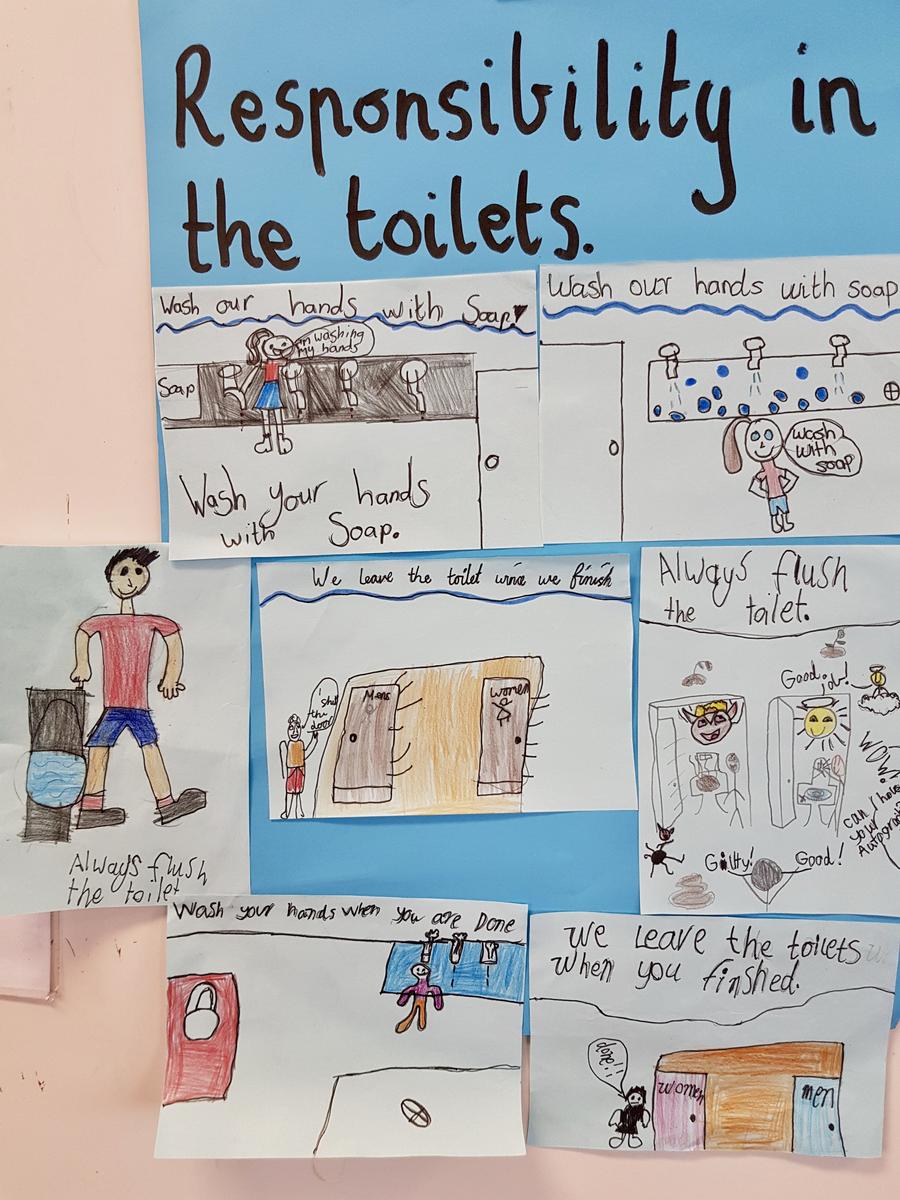 Responsibility in
the toilets.
Wash our hands with Soap!
im washing
my hands
Soap
Wash your hands
with Soap.
Wash our hands with soap
Wash
with
soap
Always flush
the toilet
We leave the toilet wnce we finish
I shut
the
door
Mens
women
Always flush
the toilet.
Good job!
WOW!
can I have
your
Autograph
Guilty!
Good!
Wash your hands when you are Done
We Leave the toilets
when you finshed.
done...
women
men